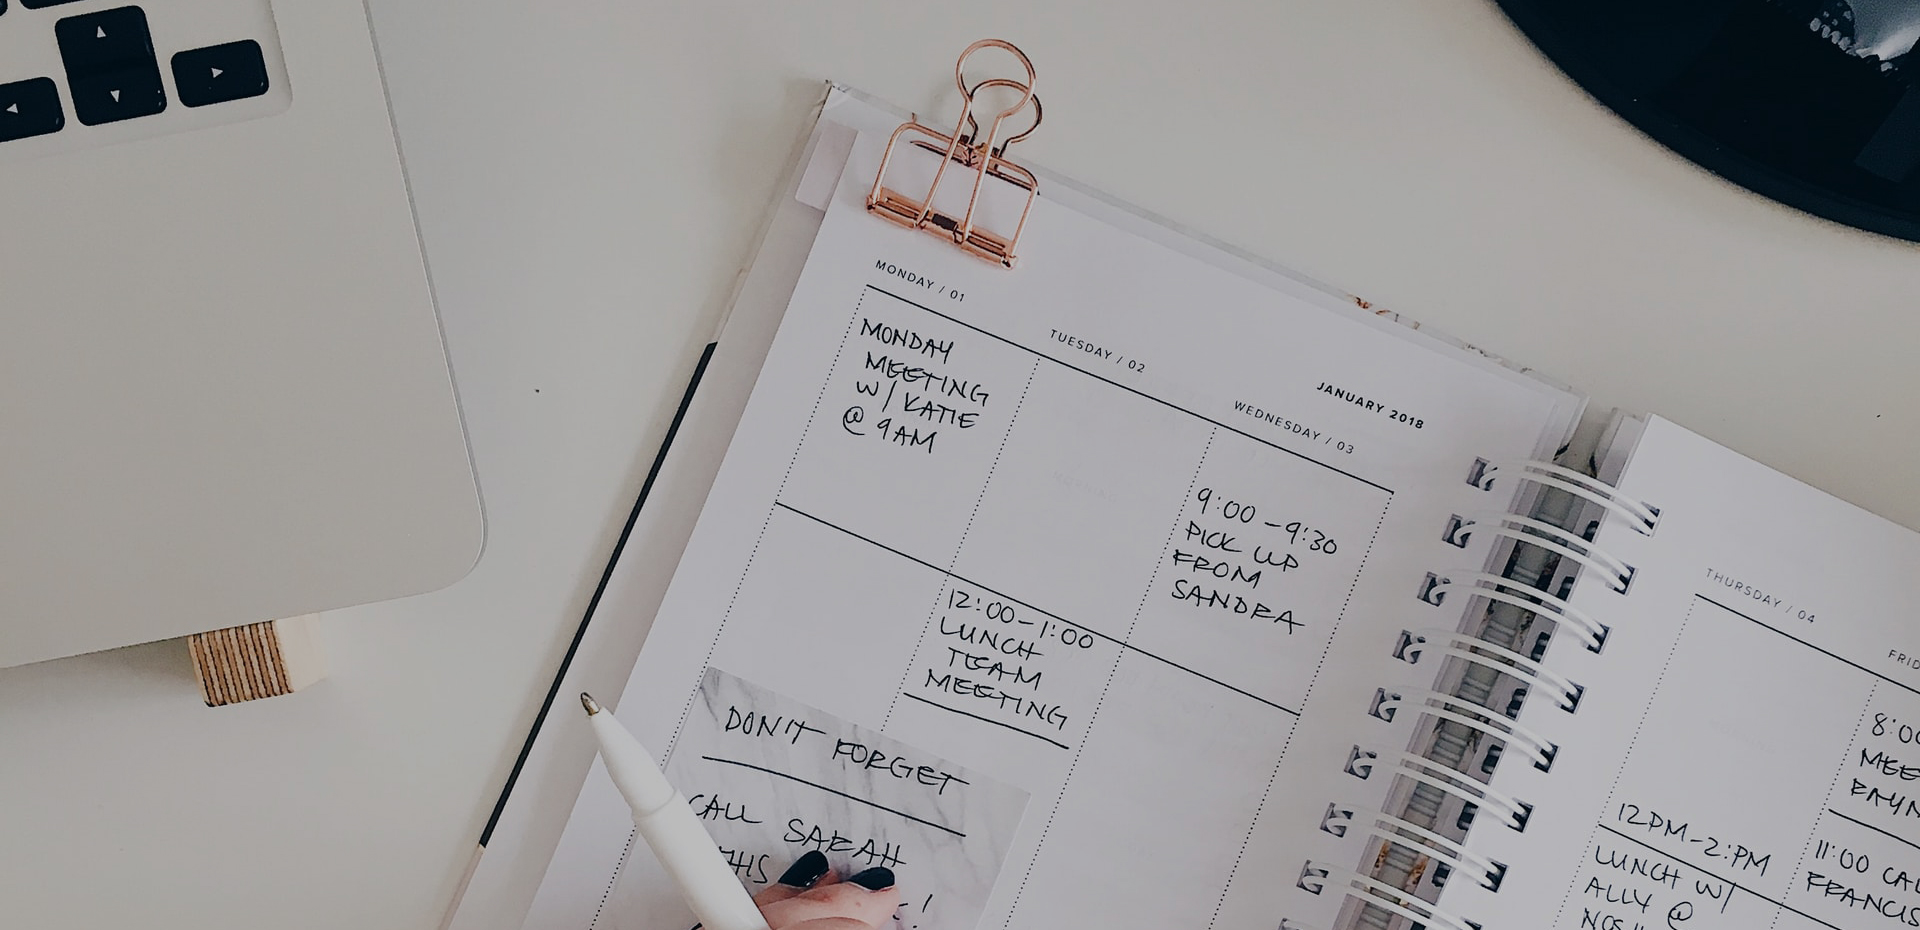 MONDAY / 01
MONDAY
MEETING
W/ KATIE
@ 9AM
TUESDAY / 02
12:00-1:00
LUNCH
TEAM
MEETING
JANUARY 2018
WEDNESDAY / 03
9:00-9:30
PICK UP
FROM
SANDRA
DON'T FORGET
CALL SARAH
THIS
!
THURSDAY / 04
12PM-2:PM
LUNCH W/
ALLY @
8:00
11:00
FRANCIS